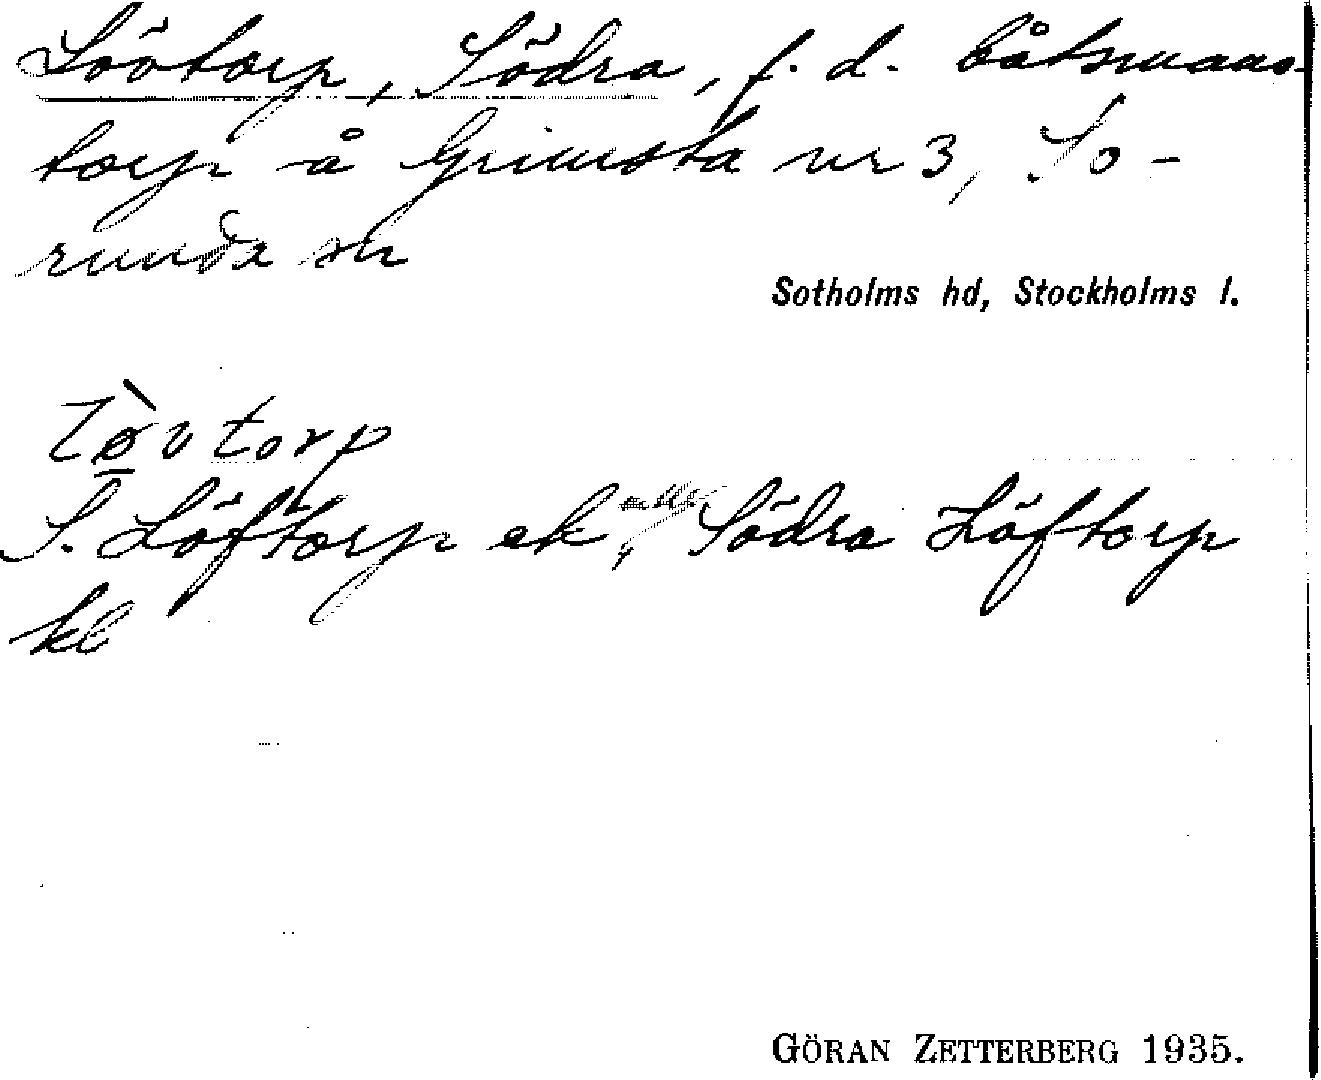 Lövtorp, Södra, f. d. båtsmans-
torp å Grimsta nr 3, So-
runda sn
Sotholms hd, Stockholms l.
lø̀vtorp
S. Löftorp ek, Södra Löftorp
kl
GÖRAN ZETTERBERG 1935.